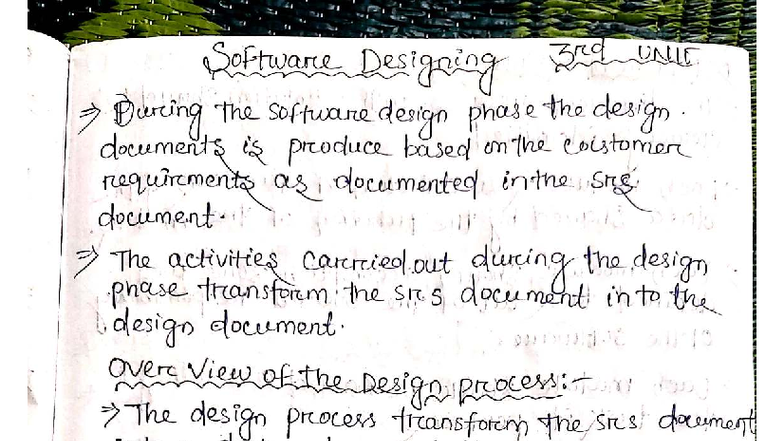 Software Designing 3rd UNIT
⇒ During the software design phase the design
documents is produce based on the coustomer
requirements as documented in the srs
document.
⇒ The activities carried out during the design
phase transform the srs document in to the
design document.
Over View of the Design process:-
⇒ The design process transform the srs document